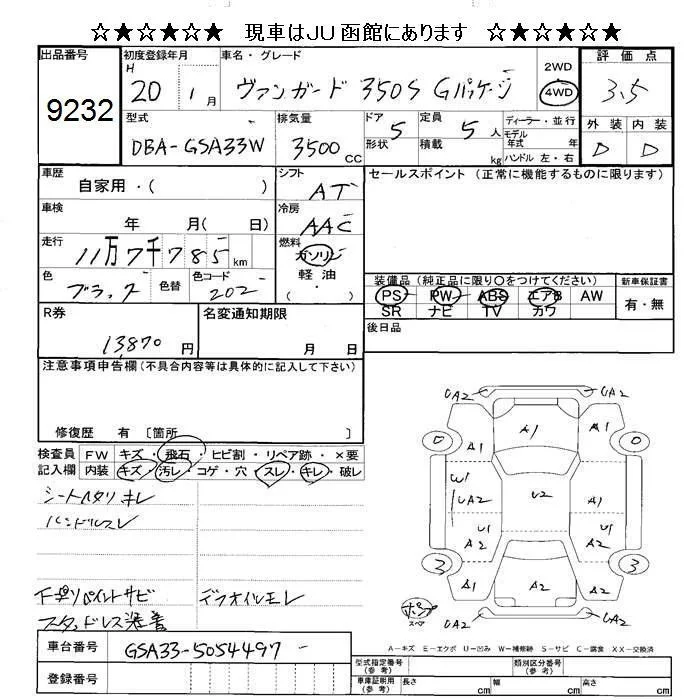 ☆★☆★☆★ 現車はＪＵ函館にあります ☆★☆★☆★
出品番号 9232
初度登録年月 H 20 1月
車名・グレード ヴァンガード 350S Gパッケージ
2WD
4WD
評価点 3.5
外装 内装
D D
型式 DBA-GSA33W
排気量 3500 CC
ドア 5
形状
定員 5人
積載 kg
ディーラー・並行
モデル年式 年
ハンドル 左・右
車歴 自家用・( )
シフト AT
セールスポイント (正常に機能するものに限ります)
車検 年 月( 日)
冷房 AAC
走行 11万7千785km
燃料 ガソリン
軽油
( )
色 ブラック 色替
色コード 202
装備品 (純正品に限り○をつけてください)
PS PW ABS エアB AW
SR ナビ TV カワ
新車保証書
有・無
R券 13,870円
名変通知期限 月 日
後日品
注意事項申告欄 (不具合内容等は具体的に記入して下さい)
修復歴 有 〔箇所 〕
検査員記入欄
FW キズ・飛石・ヒビ割・リペア跡・×要
内装 キズ・汚レ・コゲ・穴・スレ・キレ・破レ
シートヘタリ キレ
ハンドルスレ
下廻りペイントサビ デフオイルモレ
スタッドレス装着
UA2 UA2
A1 A1 A1
0 0
W1
UA2 U2 A1
U1 U1
A2 A2
3 3
A1 A2 A2
UA2 UA2
スペア
A=キズ E=エクボ U=凹み W=補修跡 S=サビ C=腐食 XX=交換済
車台番号 GSA33-5054497
登録番号
型式指定番号 (参考)
類別区分番号 (参考)
車庫証明用 (参考) 長さ cm 幅 cm 高さ cm